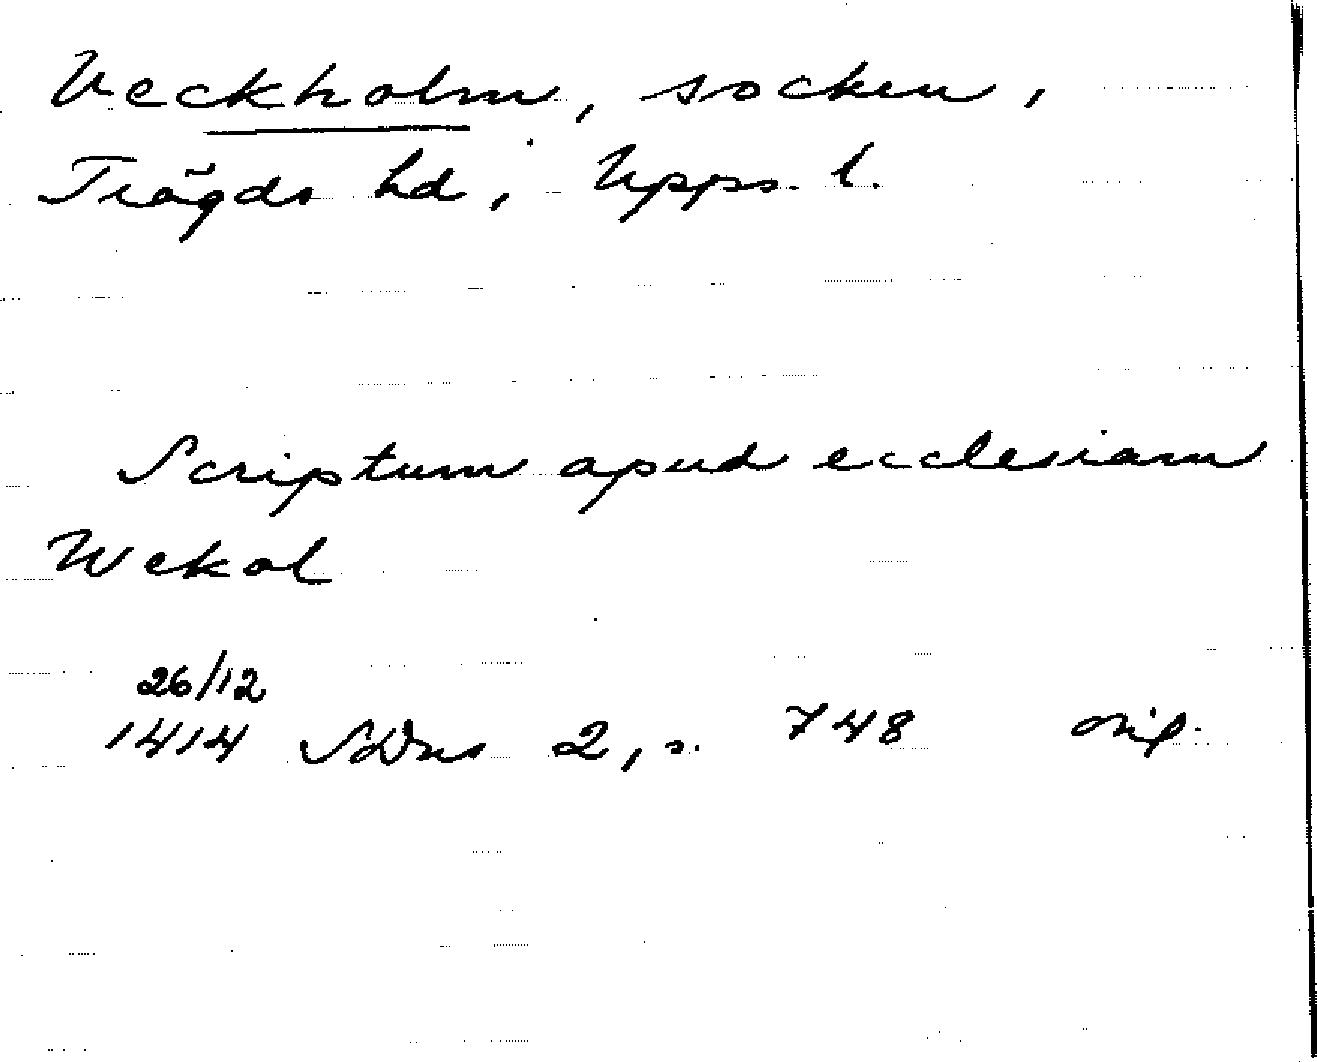 Veckholm, socken,
Trögds hd, Upps. l.
Scriptum apud ecclesiam
Wekol
26/12
1414 SDns 2, s. 748 orig.